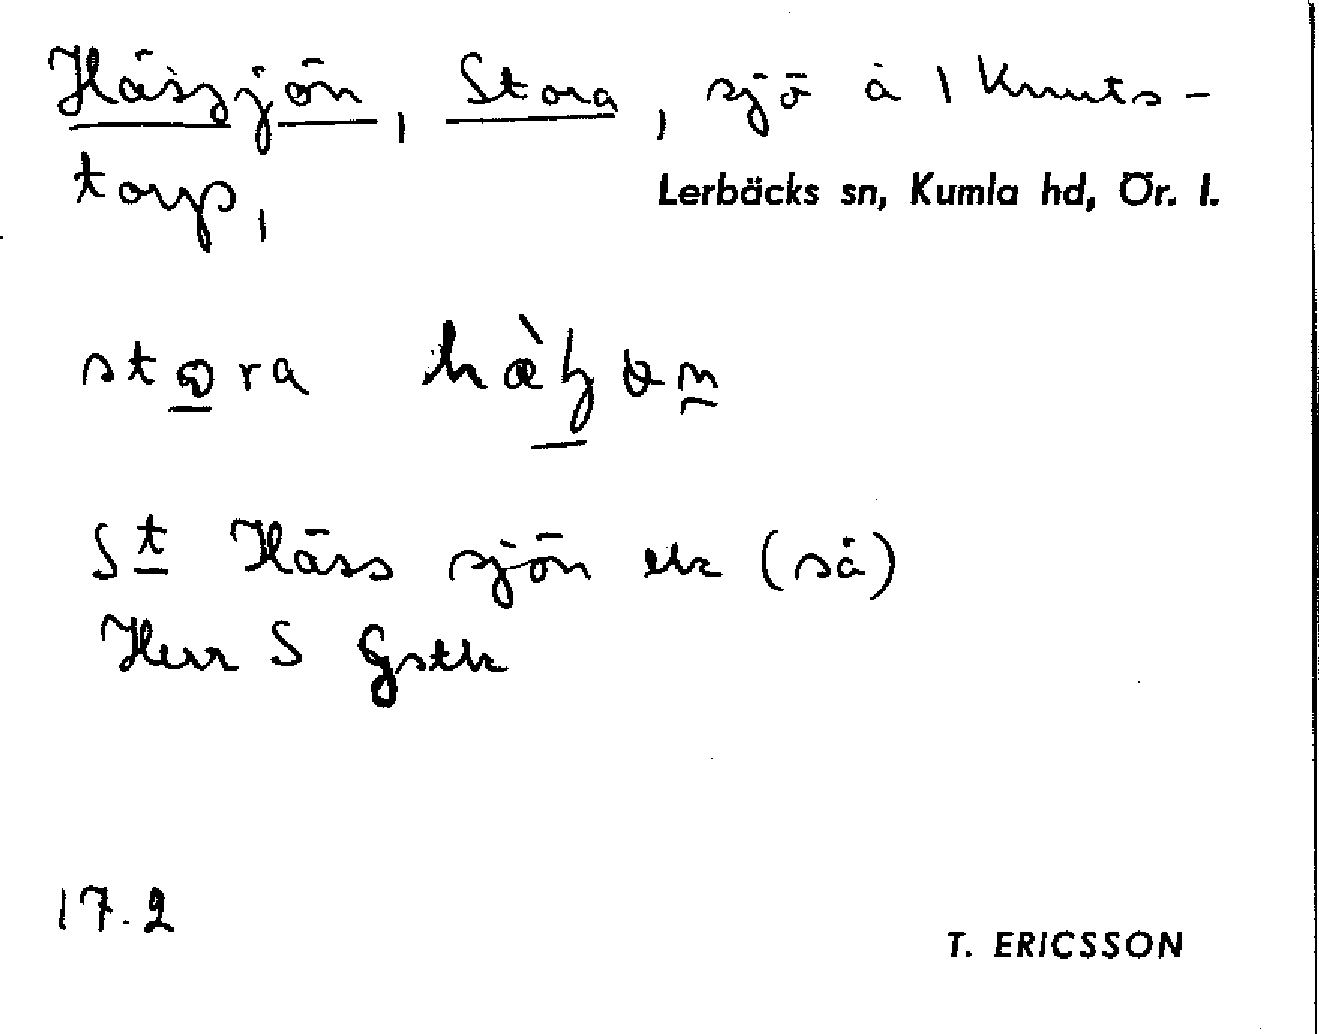 Hässjön, Stora, sjö å 1 Knuts-
torp,
Lerbäcks sn, Kumla hd, Ör. l.
stora
St Häss sjön ek (så)
Herr S Gstk
17.2
T. ERICSSON